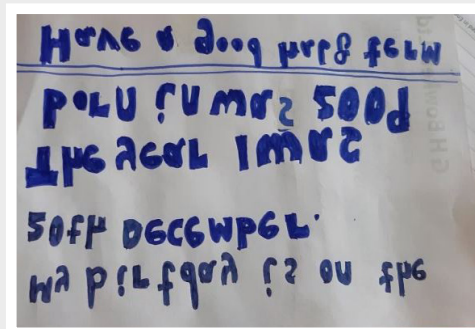 My birthday is on the
20th December.
The year I was
born in was 2009
Have a good half term